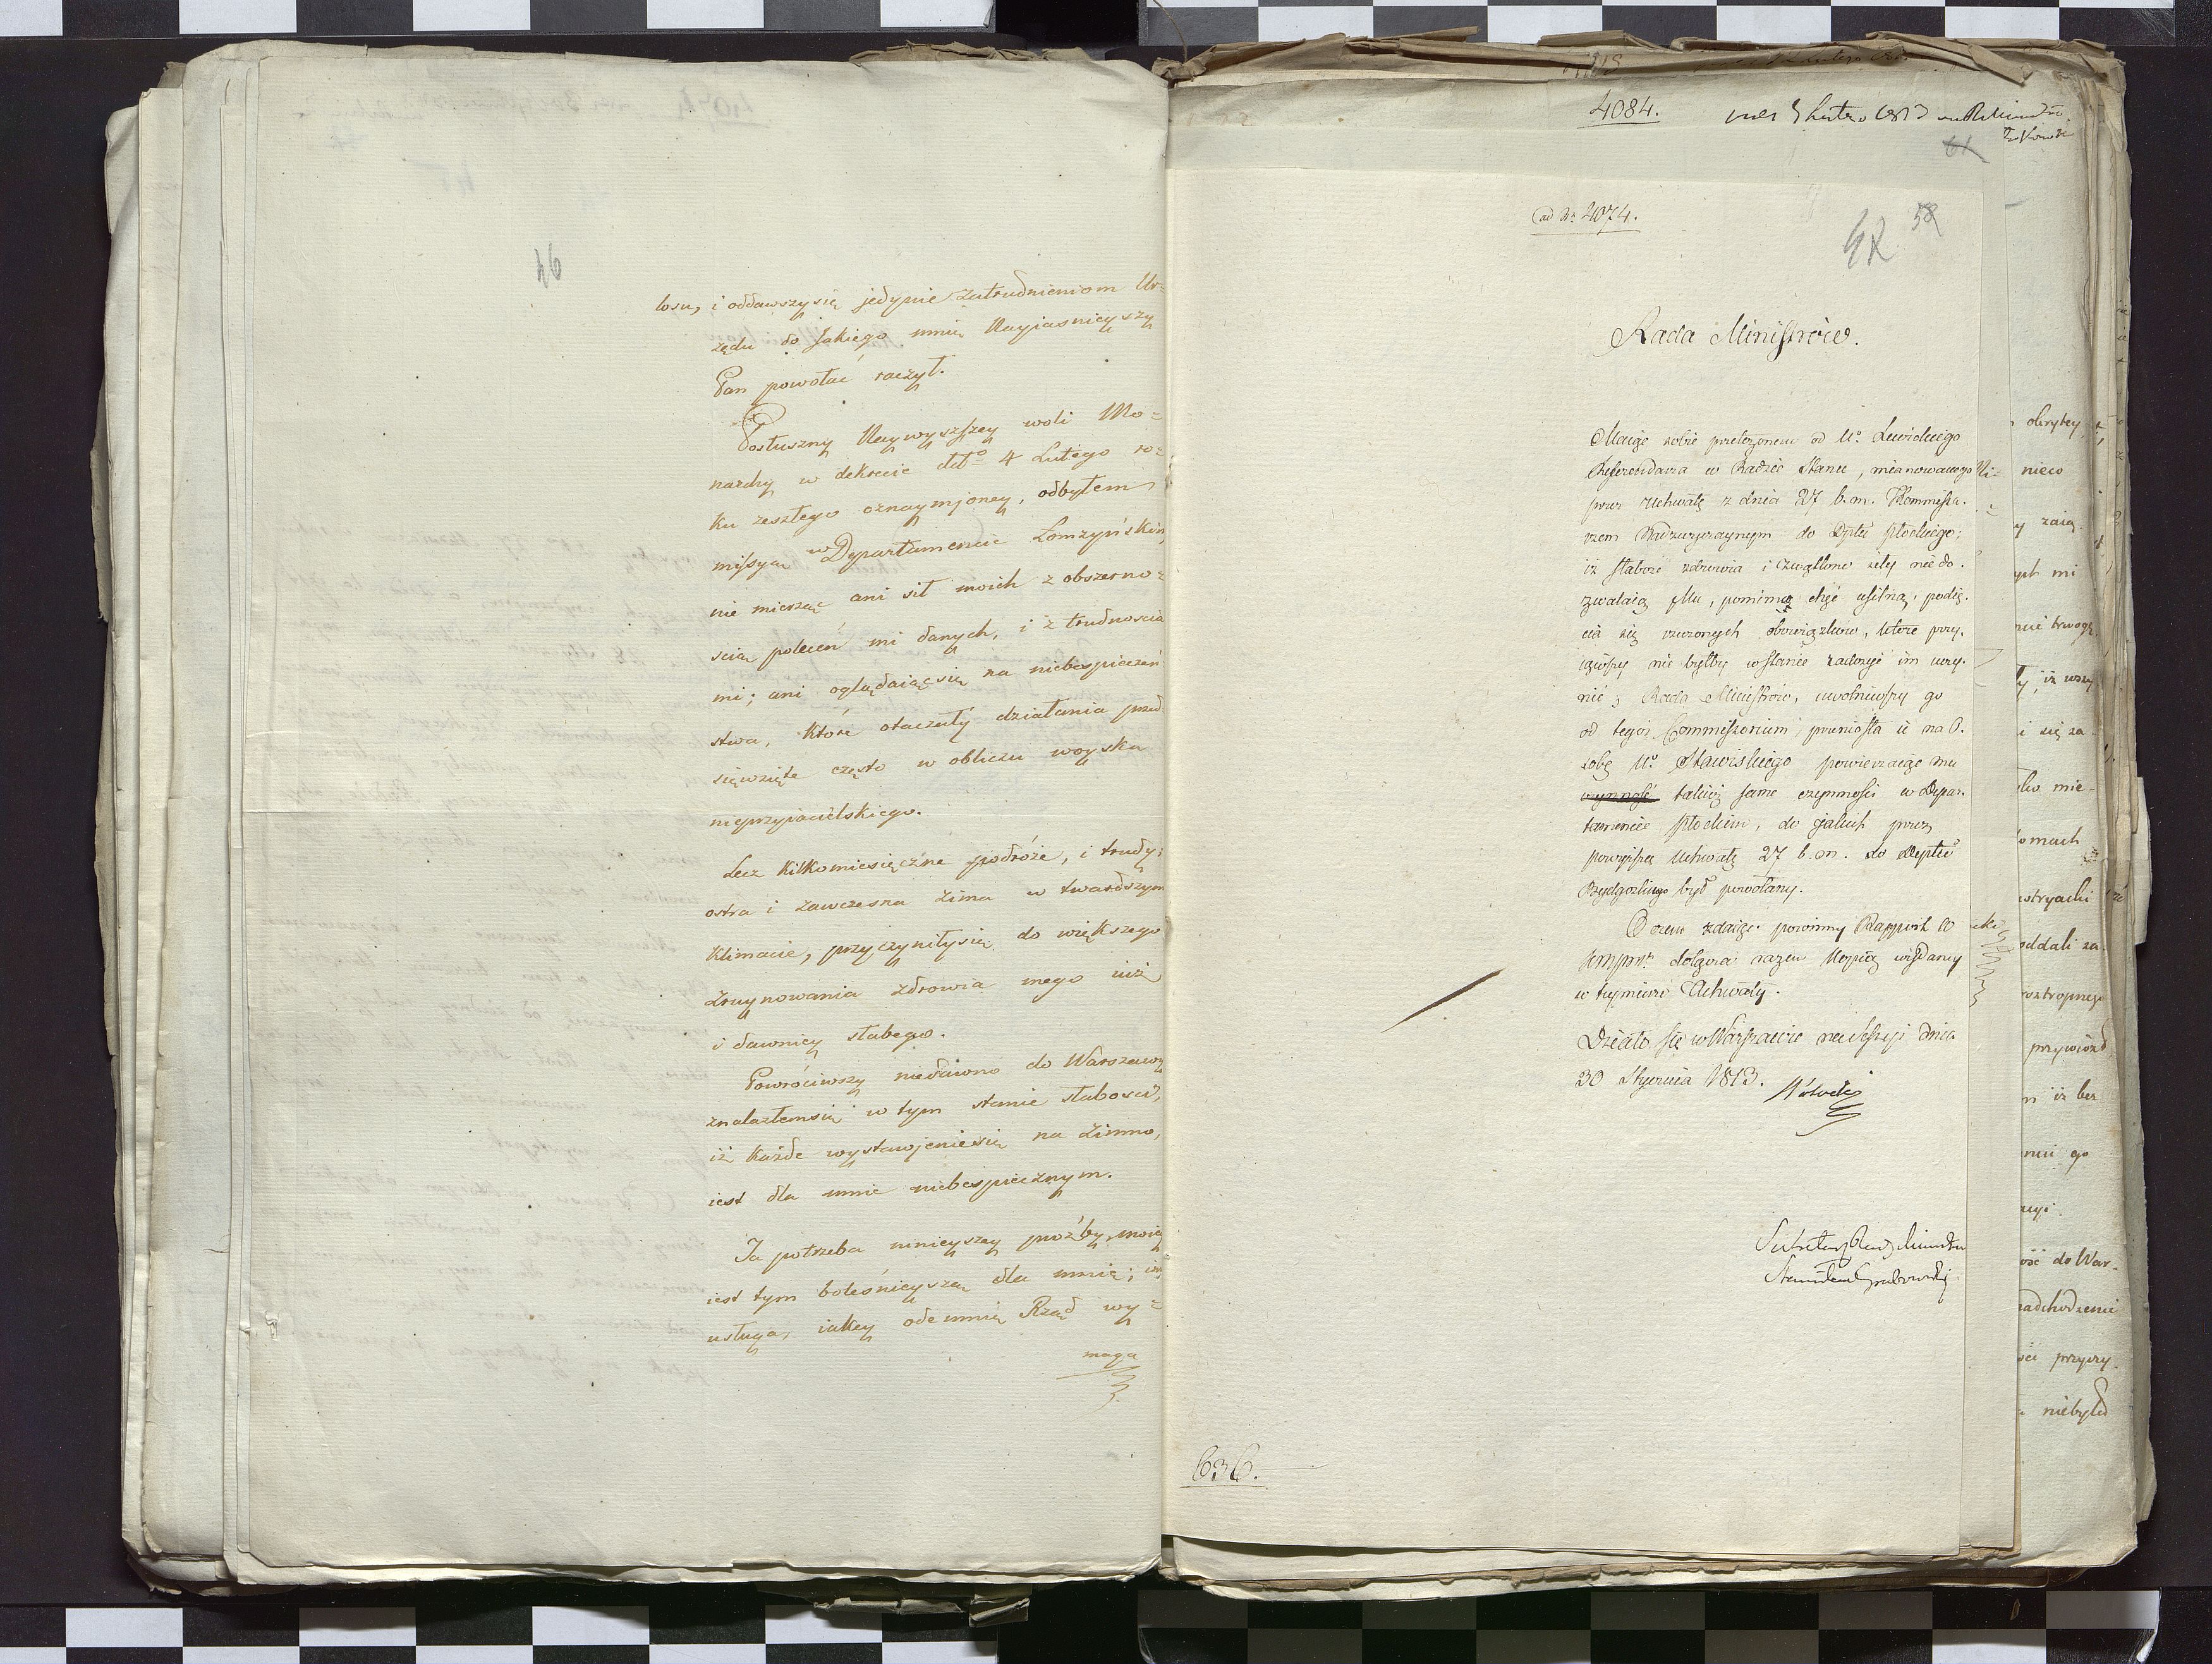 46
losu, i oddawszy się jedynie zatrudnieniom Ur=
zędu do jakiego mnię Nayiasnieyszy
Pan powołać raczył.
Posłuszny Naywyższey woli Mo=
narchy w dekrecie dtto 4 Lutego ro=
ku zeszłego oznaymioney, odbyłem
missyą w Departamencie Łomzyńskim,
nie mierząc ani sił moich z obszerno=
scią poleceń mi danych, i z trudnoscia
mi; ani oglądaiąc się na niebespieczeń
stwa, które otaczały działania przed
sięwzięte często w obliczu woyska
nieprzyiacielskiego.
Lecz kilkomiesięczne podróże, i trudy;
ostra i zawczesna zima w twardszym
klimacie, przyczyniły się do większego
zruynowania zdrowia mego iuż
i dawniey słabego.
Powróciwszy niedawno do Warszawy
znalazłem się w tym stanie słabosci,
iż każde wystawienie się na zimno,
iest dla mnie niebespiecznym.
Ta potrzeba ninieyszey proźby moiey
iest tym boleśnieyszą dla mnię; iż
usługa, iakiey odemnię Rząd wy=
maga
4084.
61
ad Nr. 4074.
58
Rada Ministrów.
Maiąc sobie przełożonem od Uo. Lewickiego
Referendarza w Radzie Stanu, mianowanego
przez Uchwałę z dnia 27 b. m. Kommissa-
rzem Nadzwyczaynym do Dptu Płockiego;
iż słabość zdrowia i zwątlone siły nie do-
zwalaią Mu, pomimo chęć usilną, podię-
cia się rzeczonych obowiązków, które przy-
iąwszy nie byłby w stanie zadosyć im uczy-
nić; Rada Ministrów, uwolniwszy go
od tegoż Commissorium, przeniosła ie na O-
sobę Uo. Stawiskiego powierzaiąc mu
czynność takież same czynności w Depar-
tamencie Płockim, do jakich przez
powyższą Uchwałę 27 b. m. do Deptu
Bydgoskiego był powołany.
O czem zdaiąc powinny Rapport W
dołącza razem Wypis wydaney
w tey mierze Uchwały.
Działo się w Warszawie na Sessyi dnia
30 Stycznia 1813.
Sekretarz Rady Ministrów
Stanisław Grabowski
636.